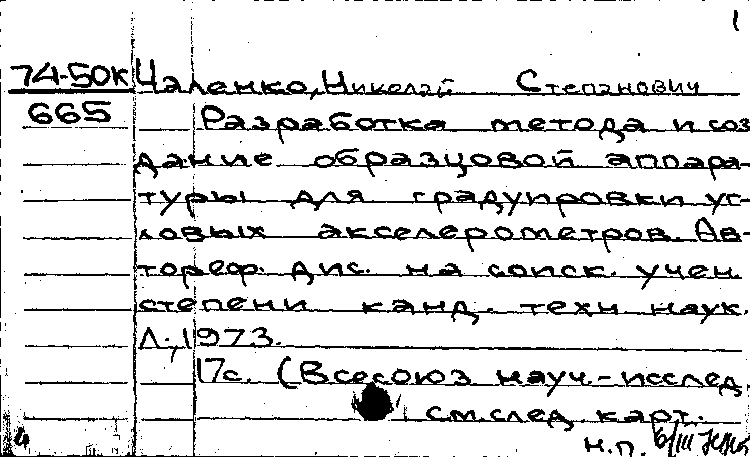 1
74-50к Чаленко, Николай Степанович
665 Разработка метода и соз
дание образцовой аппара-
туры для градуировки уг-
ловых акселерометров. Ав-
тореф. дис. на соиск. учен.
степени канд. техн наук.
Л., 1973.
17с. (Всесоюз науч.-исслед.
см. след. карт.
4 н.п. 6/III